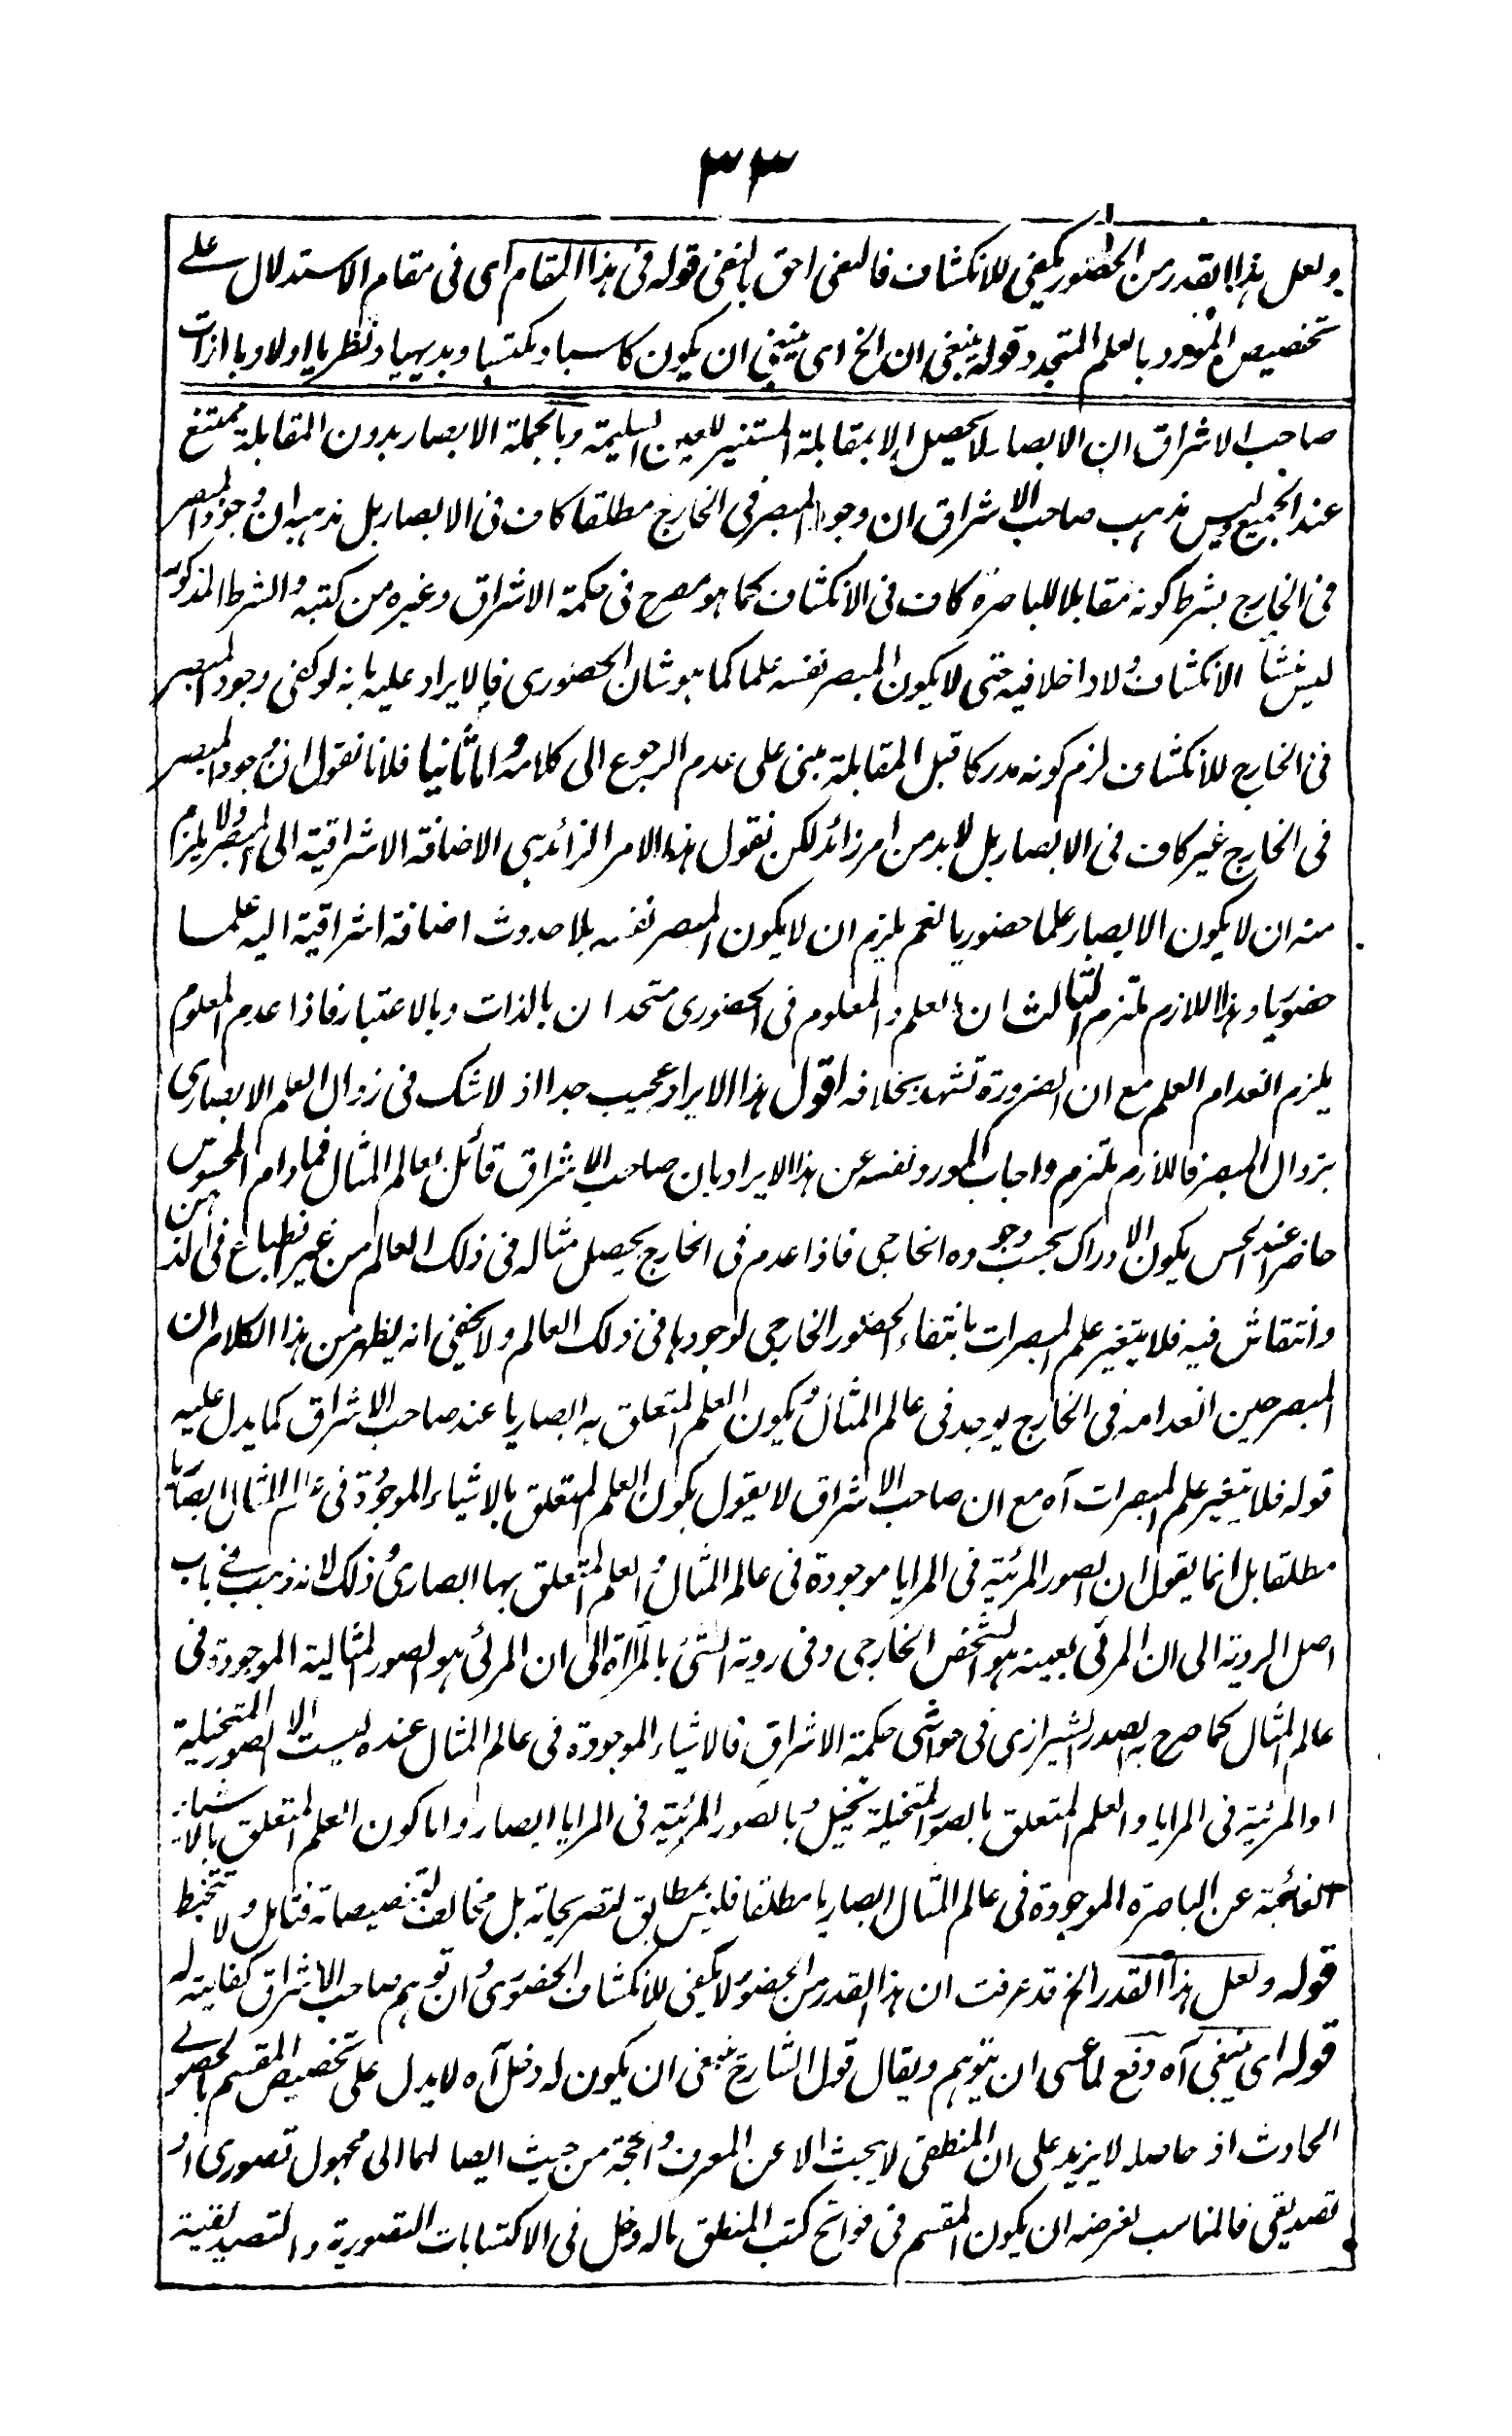 ٣٣
ولعل هذا القدر من الحضور يكفي للانكشاف فالنفي احق بالنفي قوله في هذا المقام اى في مقام الاستدلال على
تخصيص المورد بالعلم المتجدد قوله ينبغي ان الخ اى ينبغي ان يكون كاسبا ومكتسبا وبديهيا ونظريا اولا وبالذات
صاحب الاشراق ان الابصار لا يحصل الا بمقابلة المستنير للعين السليمة وبالجملة الابصار بدون المقابلة ممتنع
عند الجميع وليس مذهب صاحب الاشراق ان وجود المبصر في الخارج مطلقا كاف في الابصار بل مذهبه ان وجود المبصر
في الخارج بشرط كونه مقابلا للباصرة كاف في الانكشاف كما هو مصرح في حكمة الاشراق وغيره من كتبه والشرط المذكور
ليس منشأ الانكشاف ولا داخلا فيه حتى لا يكون المبصر نفسه علما كما هو شان الحضورى فالايراد عليه بانه لو كفى وجود المبصر
في الخارج للانكشاف لزم كونه مدركا قبل المقابلة مبنى على عدم الرجوع الى كلامه واما ثانيا فلانا نقول ان وجود المبصر
في الخارج غير كاف في الابصار بل لابد من امر زائد لكن نقول هذا الامر الزائد هى الاضافة الاشراقية الى المبصر ولا يلزم
منه ان لا يكون الابصار علما حضوريا نعم يلزم ان لا يكون المبصر نفسه بلا حدوث اضافة اشراقية اليه علما
حضوريا وهذا اللازم ملتزم الثالث ان العلم والمعلوم في الحضورى متحدان بالذات وبالاعتبار فاذا عدم المعلوم
يلزم انعدام العلم مع ان الضرورة تشهد بخلافه اقول هذا الايراد عجيب جدا اذ لا شك في زوال العلم الابصارى
بزوال المبصر فاللازم ملتزم واجاب المورد نفسه عن هذا الايراد بان صاحب الاشراق قائل بعالم المثال فما دام المحسوس
حاضرا عند الحس يكون الادراك بحسب وجوده الخارجى فاذا عدم في الخارج يحصل مثاله في ذلك العالم من غير انطباع في الذهن
وانتقاش فيه فلا يتغير علم المبصرات بانتفاء الحضور الخارجى لوجودها في ذلك العالم ولا يخفى انه يظهر من هذا الكلام ان
المبصر حين انعدامه في الخارج يوجد في عالم المثال ويكون العلم المتعلق به ابصاريا عند صاحب الاشراق كما يدل عليه
قوله فلا يتغير علم المبصرات آه مع ان صاحب الاشراق لا يقول بكون العلم المتعلق بالاشياء الموجودة في عالم المثال ابصاريا
مطلقا بل انما يقول ان الصور المرئية في المرايا موجودة في عالم المثال والعلم المتعلق بها ابصارى وذلك لانه ذهب في باب
اصل الروية الى ان المرئى بعينه هو الشخص الخارجى وفي روية الشئ بالمرآة الى ان المرئى هو الصور المثالية الموجودة في
عالم المثال كما صرح به الصدر الشيرازى في حواشى حكمة الاشراق فالاشياء الموجودة في عالم المثال عنده ليست الا الصور المتخيلة
او المرئية في المرايا والعلم المتعلق بالصور المتخيلة تخيل وبالصور المرئية في المرايا ابصار واما كون العلم المتعلق بالاشياء
الغائبة عن الباصرة الموجودة في عالم المثال ابصاريا مطلقا فليس بمطابق لتصريحاته بل مخالف لتنصيصاته فتأمل ولا تخبط
قوله ولعل هذا القدر الخ قد عرفت ان هذا القدر من الحضور لا يكفي للانكشاف الحضورى وان توهم صاحب الاشراق كفايته له
قوله اى ينبغي آه دفع لما عسى ان يتوهم ويقال قول الشارح ينبغي ان يكون له دخل آه لا يدل على تخصيص المقسم بالحصولى
الحادث اذ حاصله لا يزيد على ان المنطقى لا يبحث الا عن المعرف والحجة من حيث ايصالهما الى مجهول تصورى او
تصديقى فالمناسب لغرضه ان يكون المقسم في فواتح كتب المنطق ماله دخل في الاكتسابات التصورية والتصديقية